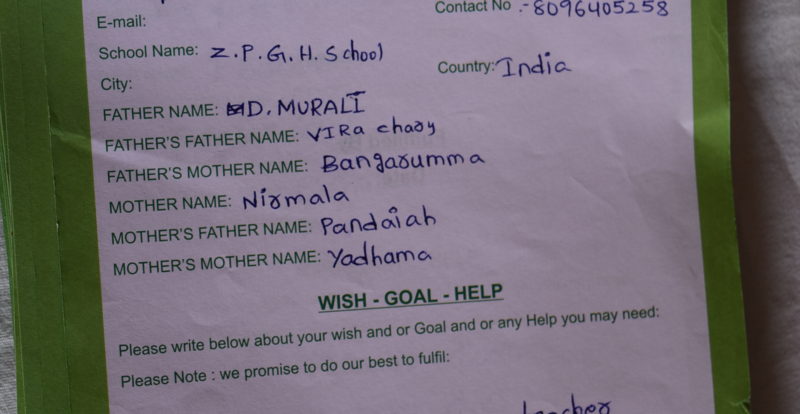 Contact No :- 8096405258
E-mail:
School Name: Z.P.G.H. School
City:
Country: India
FATHER NAME: D. MURALI
FATHER'S FATHER NAME: VIRa chary
FATHER'S MOTHER NAME: Bangarumma
MOTHER NAME: Nirmala
MOTHER'S FATHER NAME: Pandaiah
MOTHER'S MOTHER NAME: Yadhama
WISH - GOAL - HELP
Please write below about your wish and or Goal and or any Help you may need:
Please Note : we promise to do our best to fulfil: